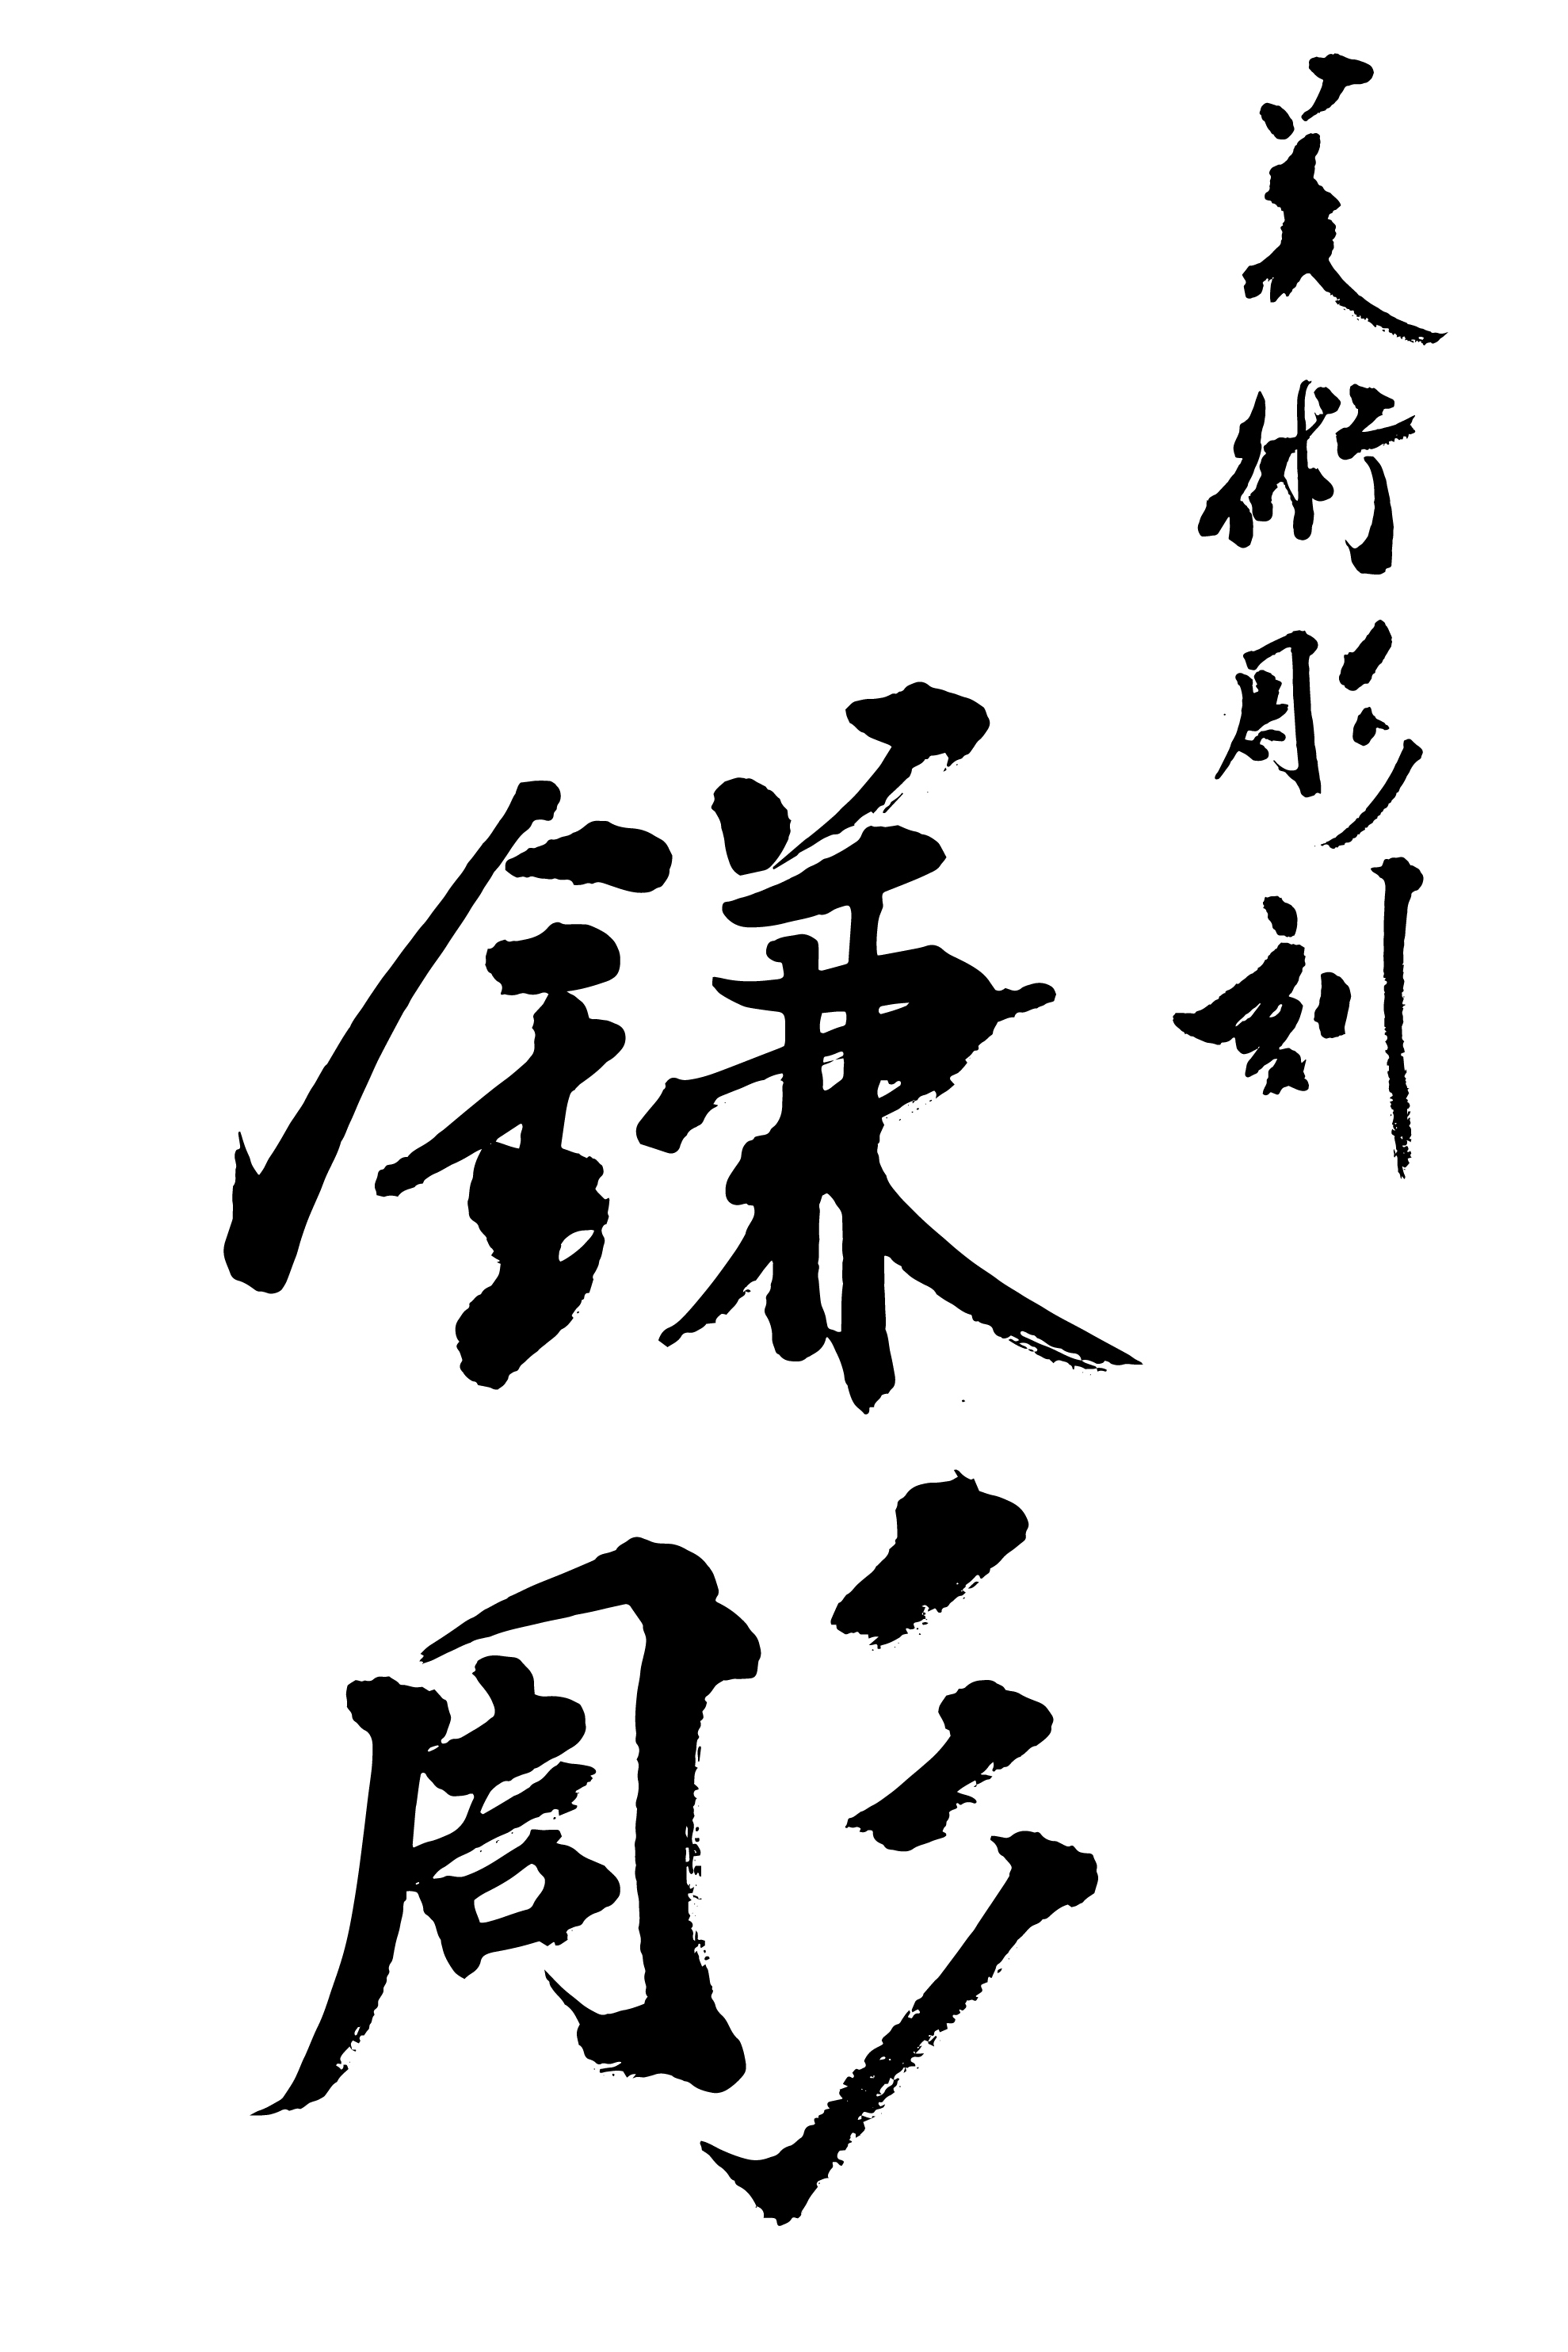 美術彫刻
鎌彫